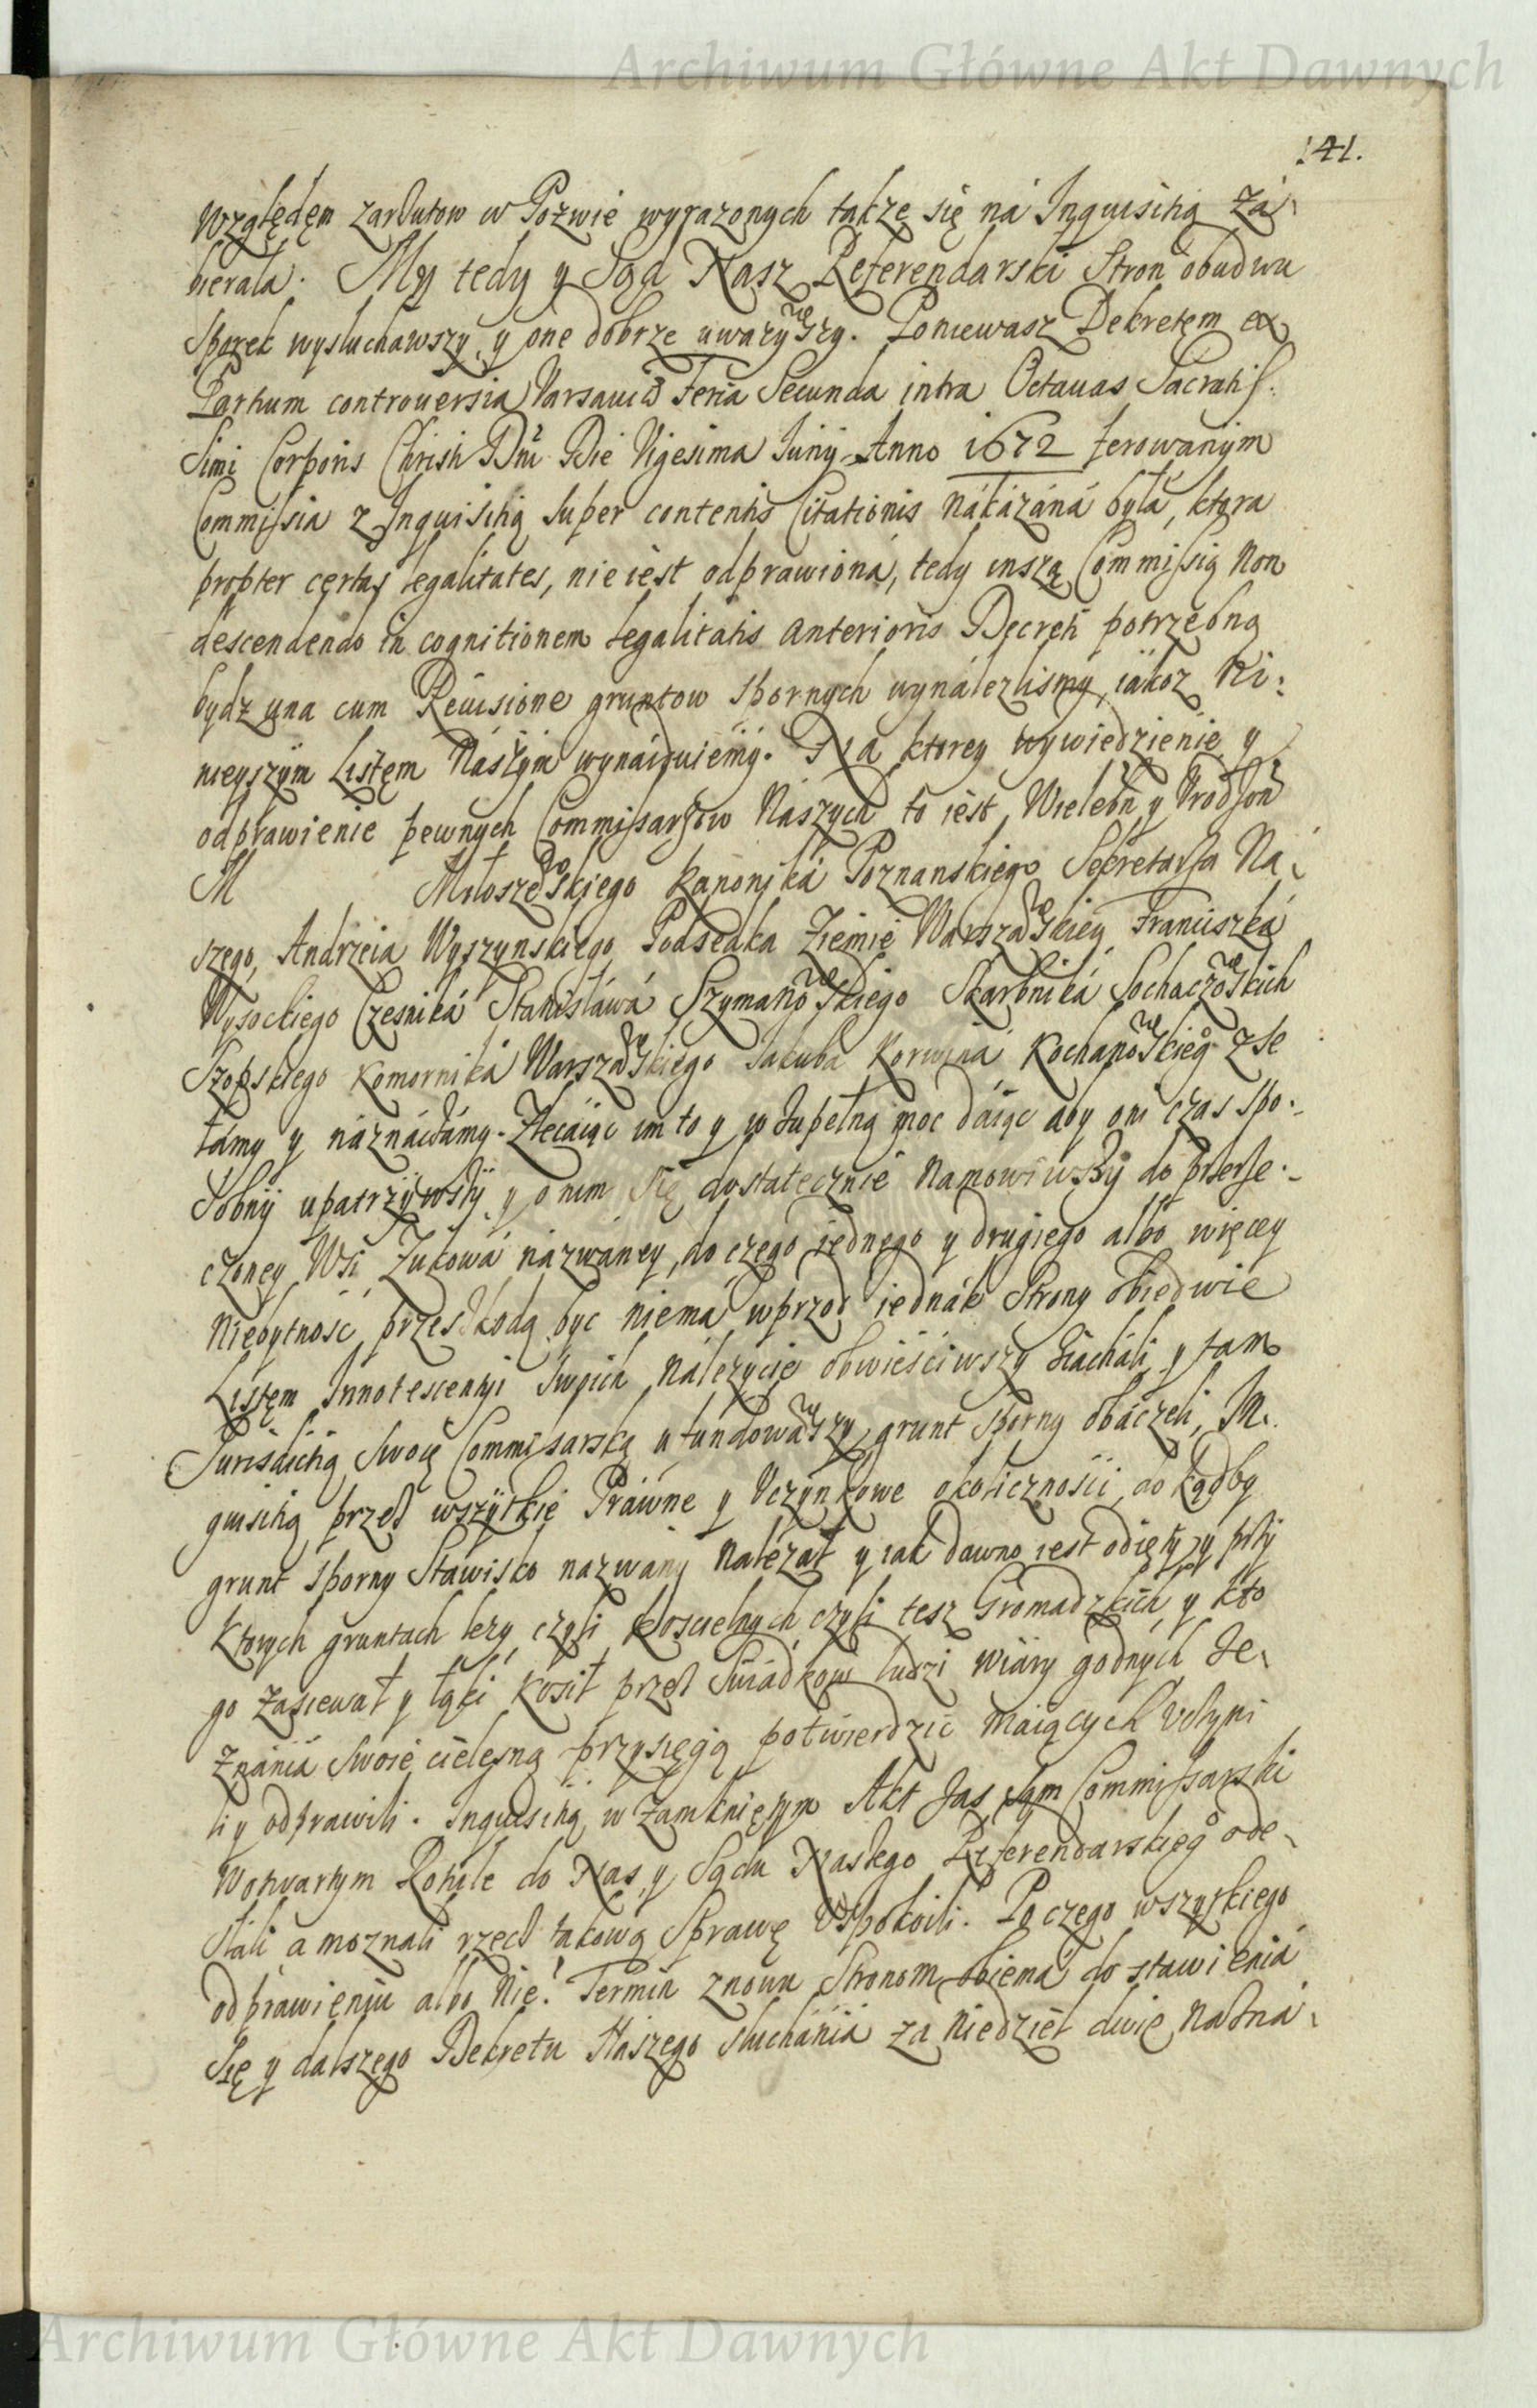 Archiwum Główne Akt Dawnych
141.
Względęm zarzutow w Pozwie wyrazonych takze się ná Inquisitią zá
bierala. My tedy y Sąd Nasz Referendarski Stron obudwu
Sporek wysłuchawszy y one dobrze uwazywszy. Poniewasz Dekretęm ex
Partium controuersia Varsauiæ Feria Secunda intra Octauas Sacratis.
simi Corporis Christi Dni Die Vigesima Iunij Anno 1672 ferowanym
Commissia z Inquisitią super contentis Citationis nákázáná byłá, ktora
propter certas legalitates, nie iest odprawioná, tedy inszą Commissią non
descendendo in cognitionem legalitatis anterioris Decreti potrzebną
bydz una cum Reuisione gruntow spornych wynálezlismy, iákoz Ni:
nieyszym Listęm Nászym wynáiduiemy. Na ktorey wywiedzienie y
odprawienie pewnych Commissarzow Nászych to iest Wielebn y Vrodzon
M Miłoszewskiego Kanoniká Poznanskiego Sekretarza Ná
szego, Andrzeia Wyszynskiego Podsędka Ziemie Warszawskiey Franciszká
Wysockiego Czesniká Stánisłáwá Szymanowskiego Skarbniká Sochaczewskich
Szopskiego Komorniká Warszawskiego Iakuba Korwiná Kochanowskiego zse
łámy y náznáczámy. Zlecáiąc im to y w zupełną moc dáiąc aby oni czas spo.
sobny upatrzywszy y o nim się dostatecznie námowiwszy do przerze.
czoney Wsi Zukowá názwáney, do czego iednego y drugiego albo więcey
niebytnosć przeszkodą byc niemá wprzod iednák Strony obiedwie
Listęm Innotescentyi swoich nálezycie obwieściwszy ziacháli, y tam
Jurisdictią swoię Commissarską ufundowawszy, grunt sporny obáczeli, In.
quisitią przez wszytkie Práwne y Vczynkowe okolicznosci, do kądby
grunt sporny Stawisko názwány nálezał y iak dawno iest odięty, y przy
ktorych gruntach lezy, czyli koscielnych, czyli tesz Gromadzkich, y kto
go zasiewał y łąki kosił przez Swiádkow ludzi wiáry godnych Ze
znánia swoie cielesną przysięgą potwierdzić máiących vczyni
li y odprawili. Inquisitią w zámknięnym Akt zas sam Commissarski
Wotwartym Rotule do Nas y Sądu Naszego Referendarskiego ode
słali a moznali rzecz takową Sprawę Vspokoili. Po czego wszytkiego
odprawieniu albo nie. Termin znowu Stronom obiemá do stawieniá
się y dalszego Dekretu Nászego słuchániá zá niedziel dwie názná
Archiwum Główne Akt Dawnych